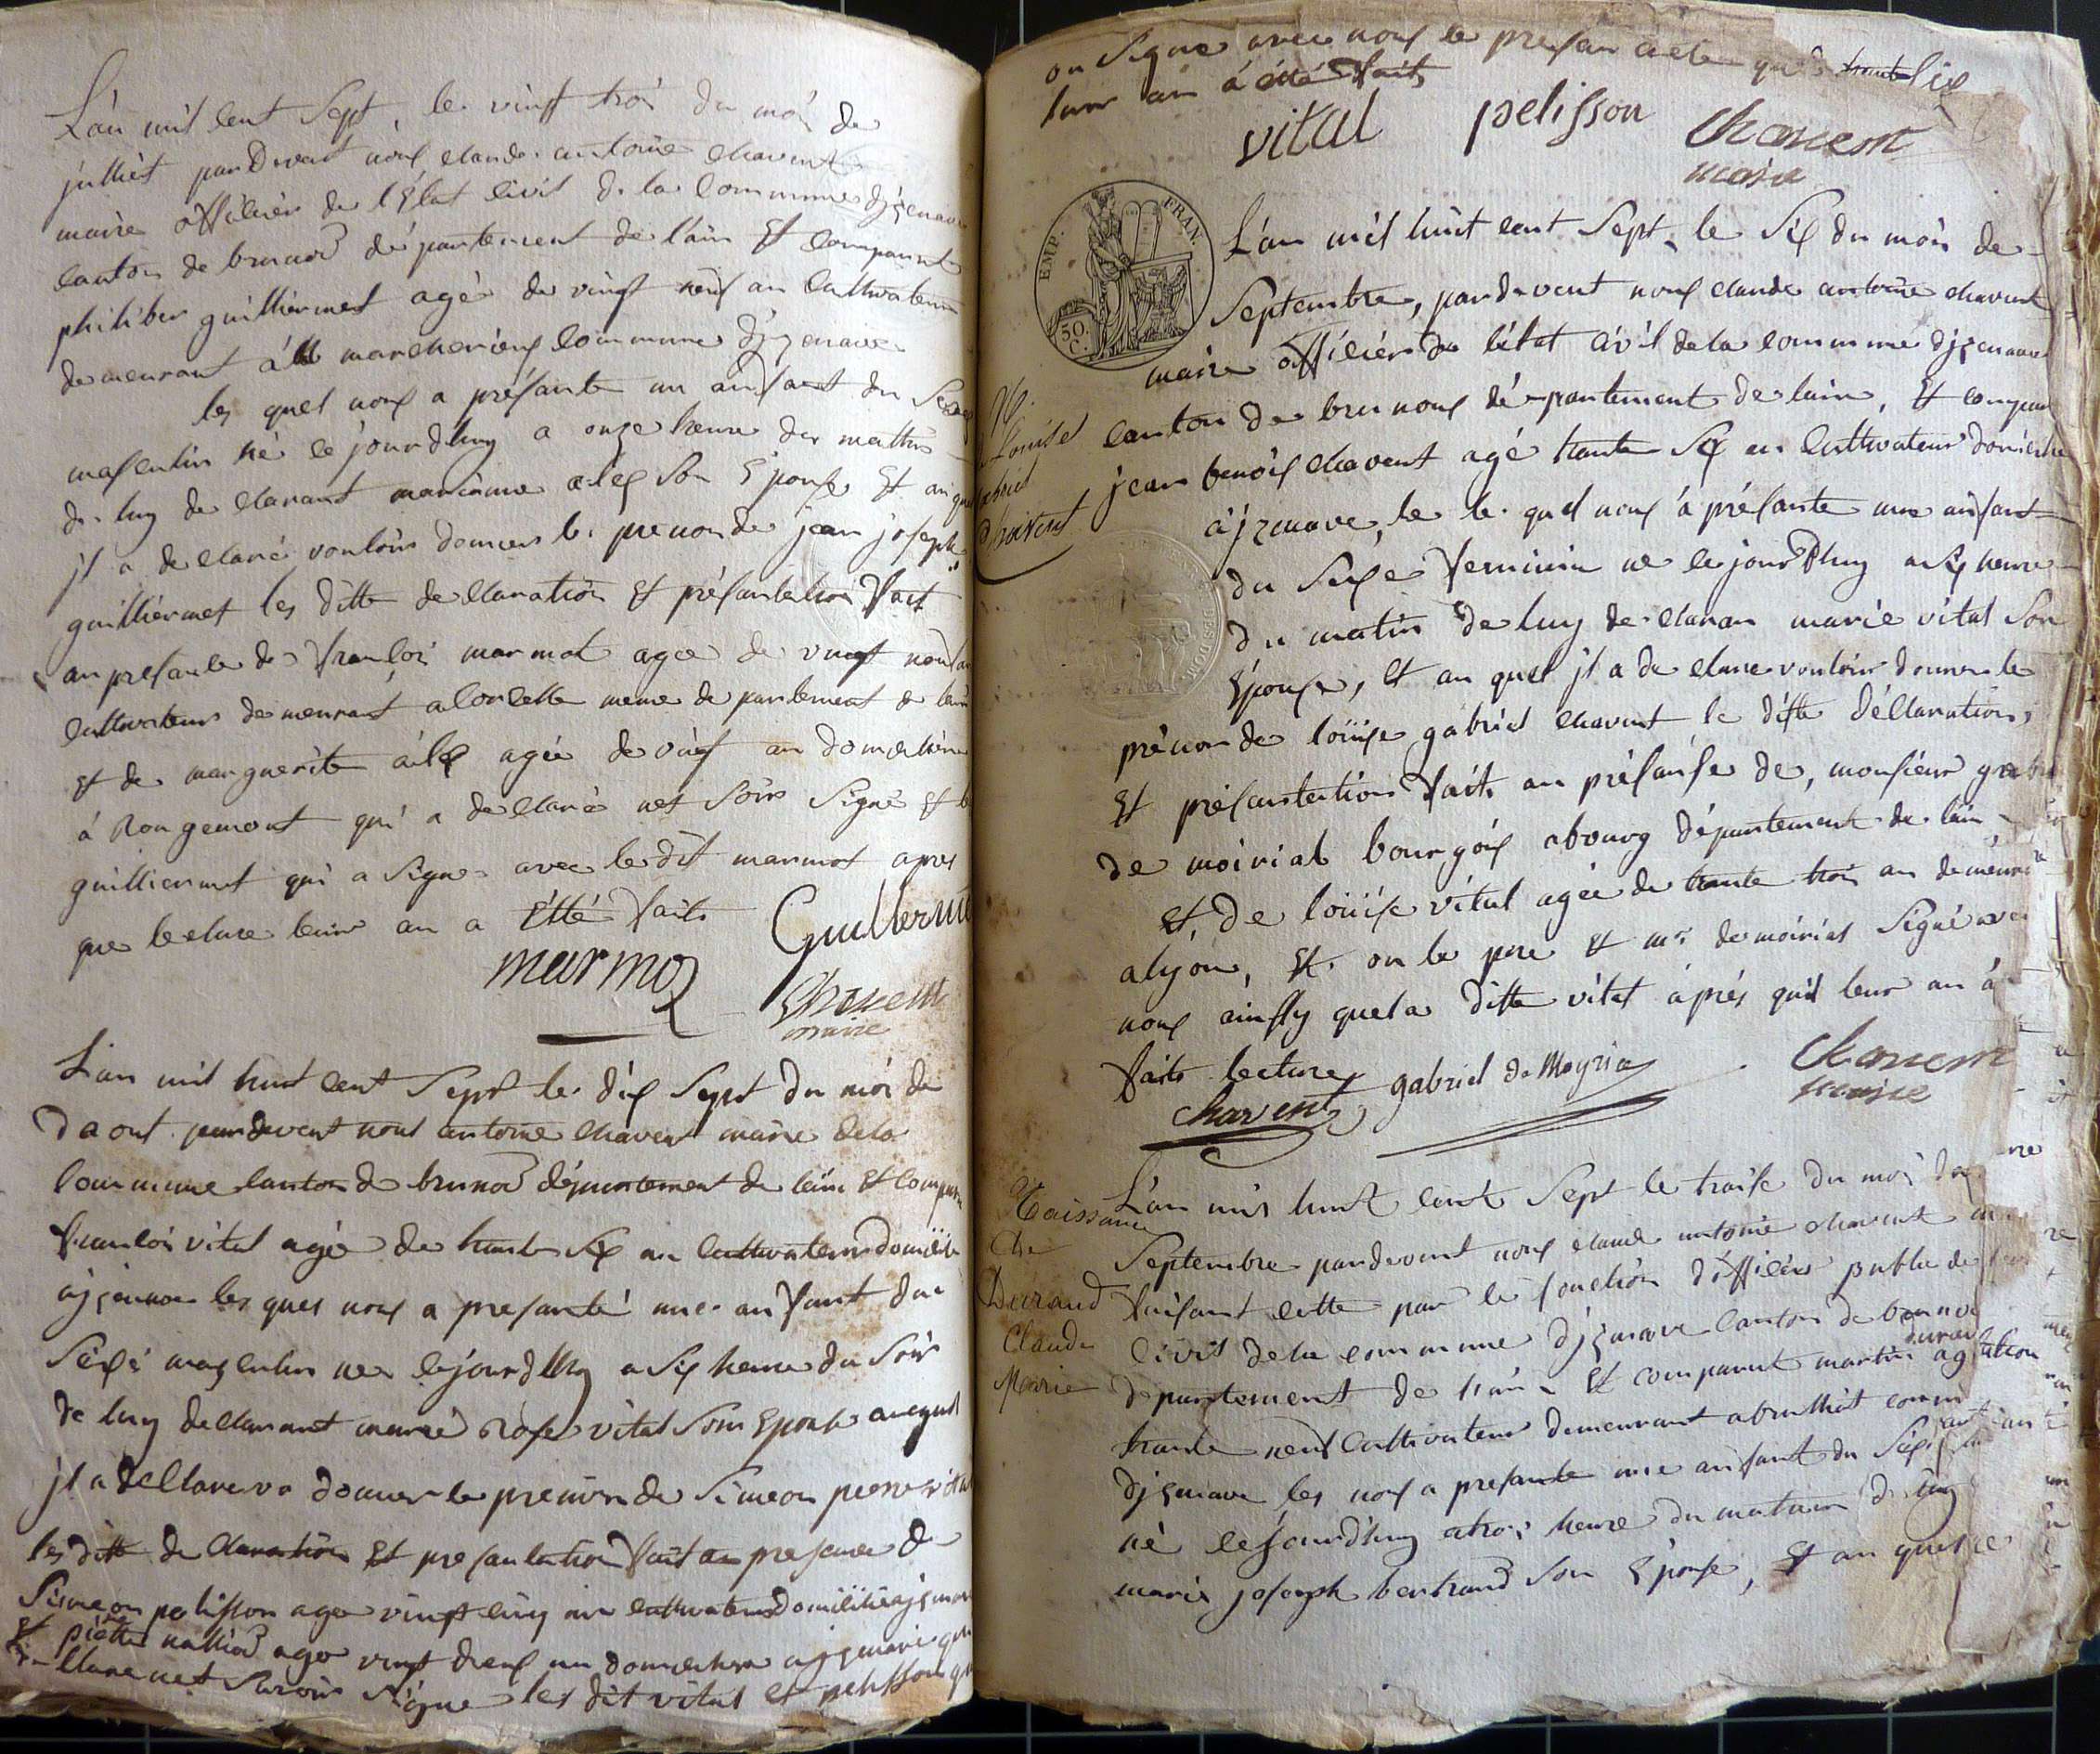 L'an mil cent Sept, le vingt troi du moi de
julliet pardevant nous claude antoine chavent
maire officier de l'Etat civil de la Commune djzenave
canton de brunod département de lain Et comparut
philiber guilliermet agé de vingt neuf an Cultivateur
demeurant a marcherieux commune djzenave
les quel nous a présante un anfant du Sexe
masculin né ce jourdhuy a onze heure du mattin
de luy declarant son Epouse Et auquel
jl a declaré vouloir donner le prenon de jean joseph
guilliermet les ditte declaration Et présantation fait
an presance de françoi marmot agee de vingt neuf an
cultivateur demeurant a corcelle meme departement de lain
Et de marguerite agée de an domestique
à Rougemont qui a declaré net Soir Signé Et le
guilliermet qui a Signe avec le dit marmot apres
que lecture leur an a Etté fait
marmoz Guillermet
Chavent
maire
L'an mil huit cent Sept le dix Sept du moi de
daout pardevent nous antoine chavent maire dela
commune canton de brunod département de lain Et comparu
françoi vital agé de trante Six an Cultivateur domicilie
ajzenave les ques nous a presanté une anfant du
Sexe masculin ne lejourdhuy a Six heure du Soir
de luy declarant marie Rose vital Son Epouse auquel
jl a declare vo donner le prenon de Simeon pierre vital
les ditte declaration Et presantation fait an presance de
Simeon pelisson age vingt cinq an cultivateur domicilie ajzenave
Et age vingt deux an domestique ajzenave qui
clare net Savoir Signe les dit vital et pelisson qui
on Signe avec nous le presan acte qui trante Six
leur an a étté fait
vital pelisson Chavent
maire
EMP. FRAN.
50. C.
L'an mil huit cent Sept, le Six du mois de
Septembre, pardevent nous claude antoine chavent
maire officier de létat civil dela commune djzenave
canton de brunoux département de lain, Et compar
jean benoix chavent agé trante Six an Cultivateur domicilie
àjzenave, le le quel nous à présante une anfant
du Sexe feminin ne lejourdhuy a Six heure
du matin de luy declaran marie vital Son
Epouse, Et au quel jl a declare vouloir donner le
prénon de loüise gabriel chavent le ditte déclaration
Et présantation fait an présanse de, monsieur gabriel
de moirial bourgois abourg département de lain
Et, de loüise vital agée de trante troi an demeurant
alyon, Et, on le pere Et mr. demoirias Signé avec
nous ainssy quela ditte vital après quil leur an à
faite lecture
chavent gabriel de Meyria Chavent
maire
N.
Louise
gabriel
Chavent
L'an mil huit cent Sept le traise du moi de
Septembre pardevant nous claude antoine chavent
faisant cette par le fonction dofficier public de
civil dela commune djzenave canton de brunod
departement de lain Et comparut martin durand agé
trante neuf Cultivateur demeurant abrulliat comm
djzenave les nous a presante une anfant du Sexe
né lejourdhuy a troi heure du matin de luy
marie joseph bertrand Son Epouse, Et au quel
Naissance
De
Durand
Claude
Marie